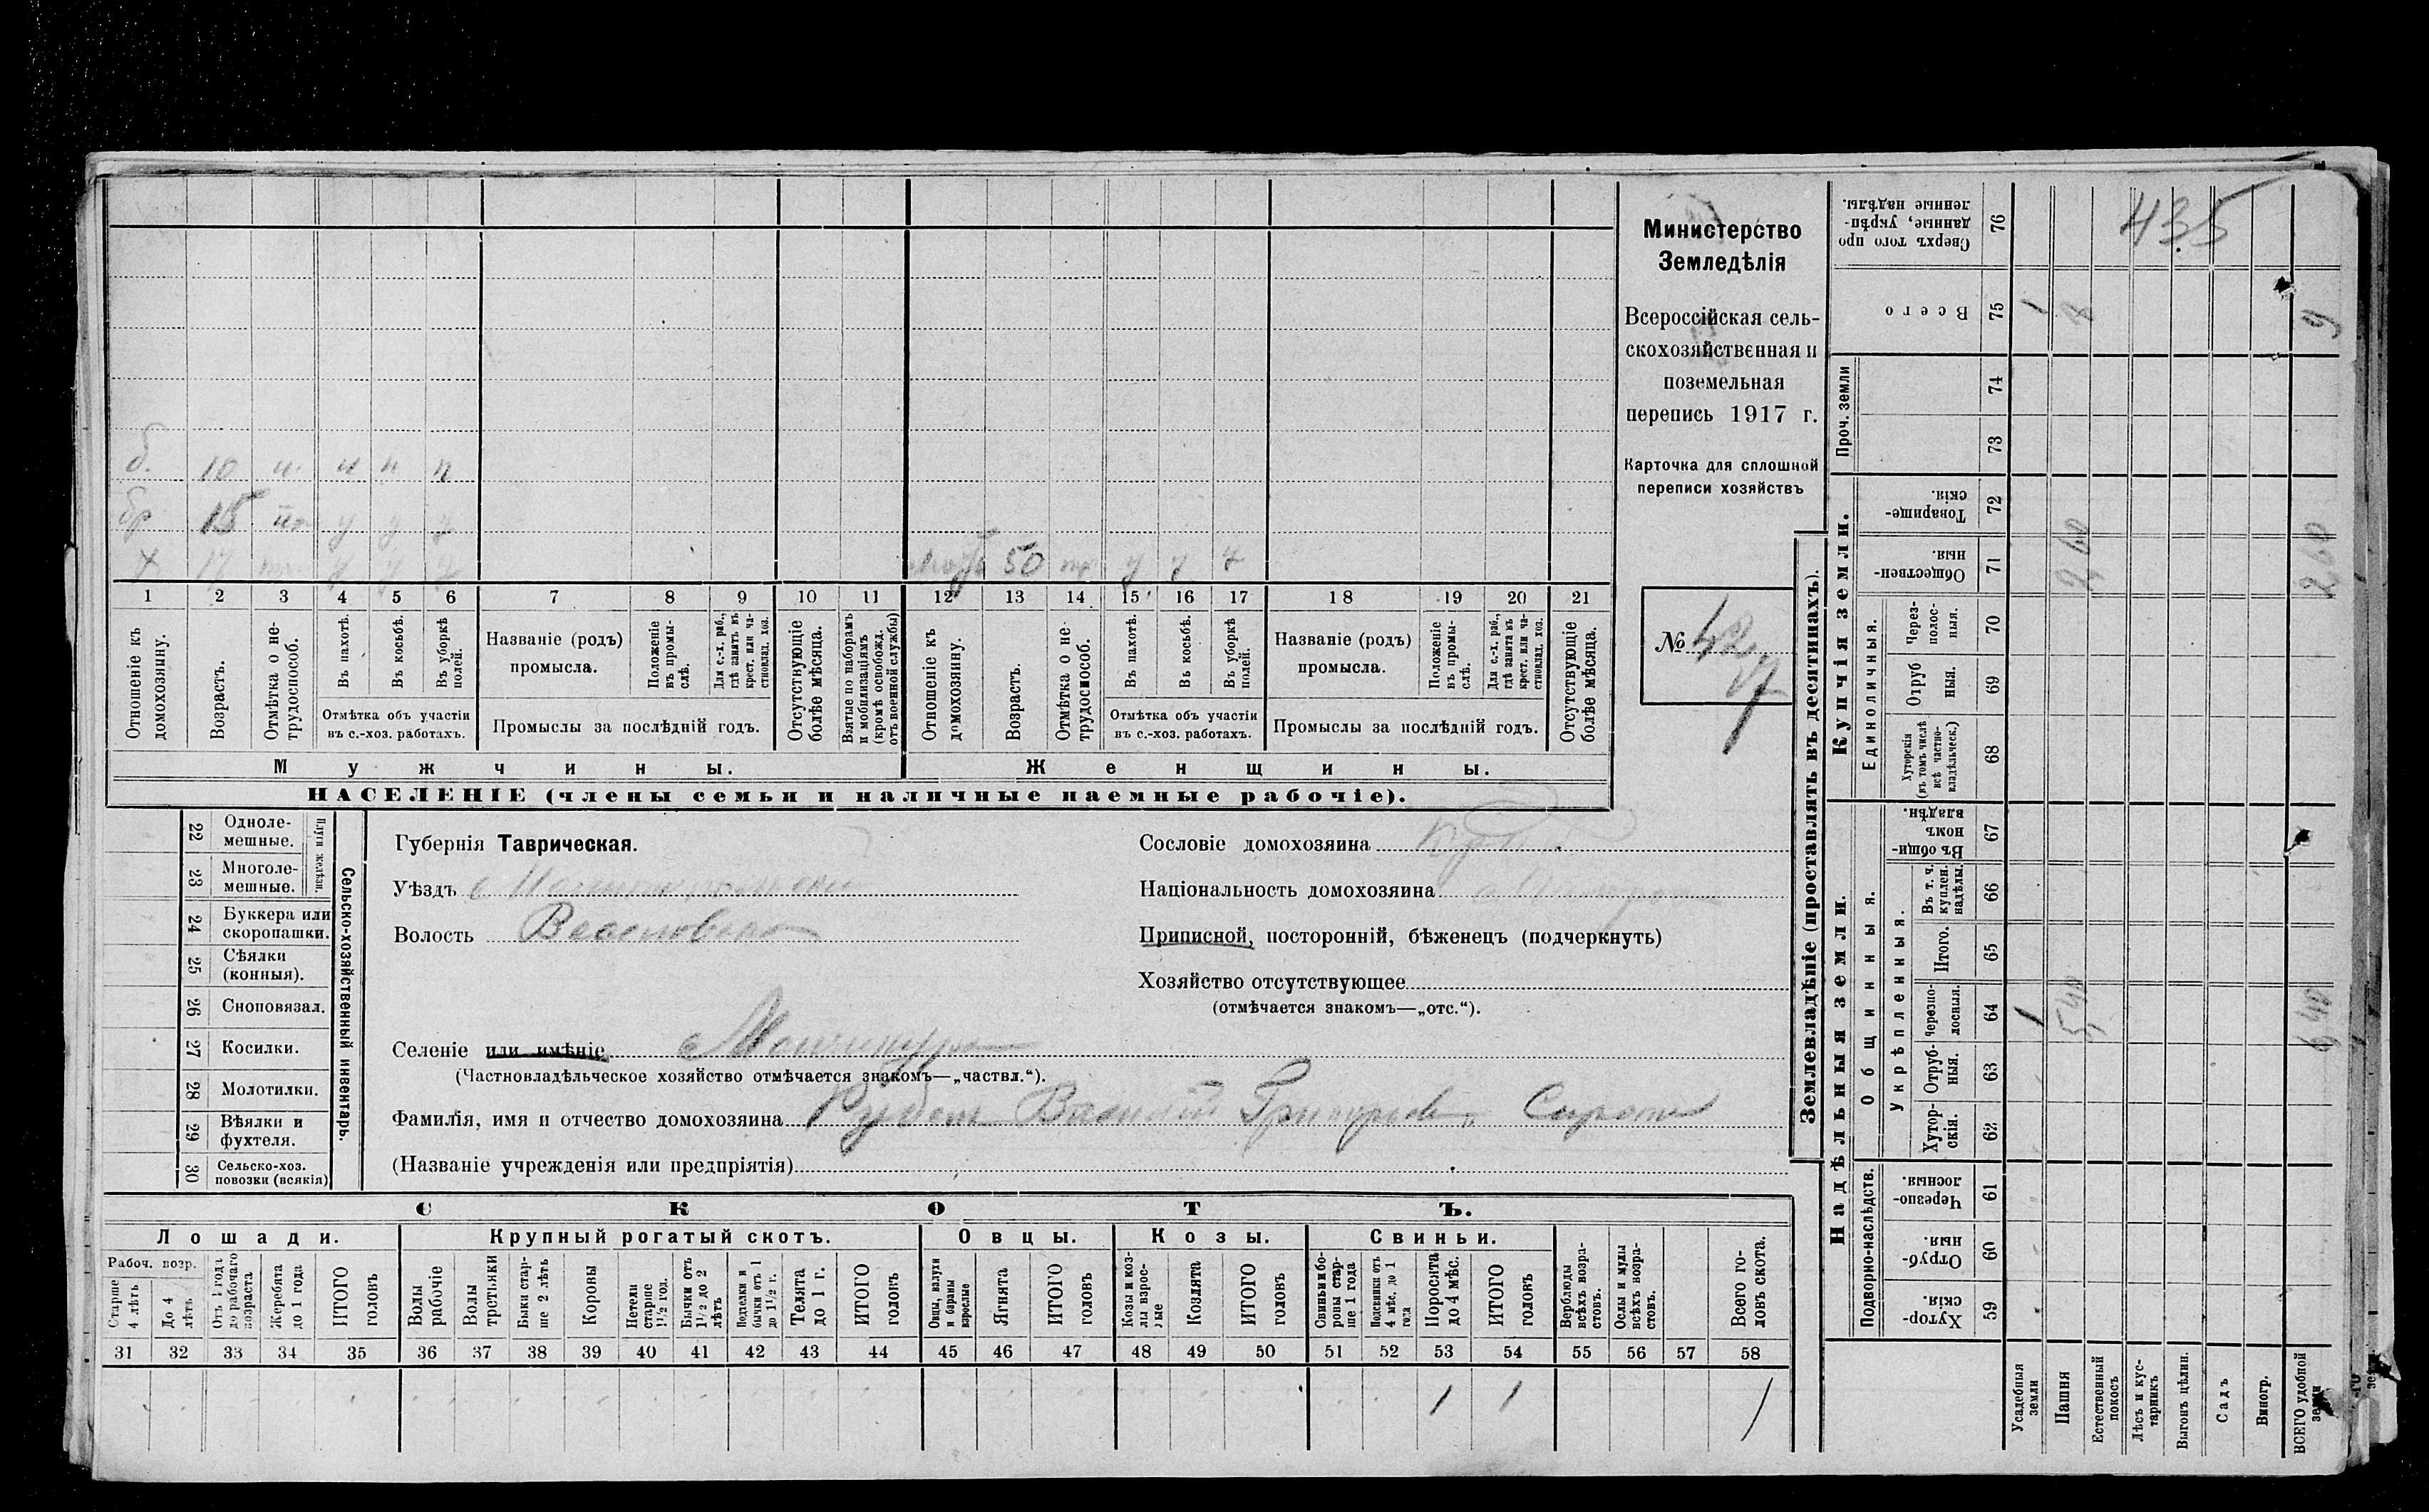 435
Министерство
Земледѣлія
Всероссійская сель-
скохозяйственная и
поземельная
перепись 1917 г.
Карточка для сплошной
переписи хозяйствъ
№ 427
б. 10 н. н н н
бр 15 пр у у у
х 17 у у у
мать 50 пр у у у
1 2 3 4 5 6 7 8 9 10 11 12 13 14 15 16 17 18 19 20 21
Отношеніе къ домохозяину.
Возрастъ.
Отмѣтка о не-трудоспособ.
Въ пахотѣ.
Въ косьбѣ.
Въ уборкѣ полей.
Отмѣтка объ участіи
въ с.-хоз. работахъ.
Названіе (родъ)
промысла.
Положеніе въ промы-слѣ.
Для с.-х. раб., гдѣ занятъ въ крест. или ча-стновлад. хоз.
Промыслы за послѣдній годъ.
Отсутствующіе болѣе мѣсяца.
Взятые по наборамъ и мобилизаціямъ (кромѣ освобожд. отъ военной службы)
Отношеніе къ домохозяину.
Возрастъ.
Отмѣтка о не-трудоспособ.
Въ пахотѣ.
Въ косьбѣ.
Въ уборкѣ полей.
Отмѣтка объ участіи
въ с.-хоз. работахъ.
Названіе (родъ)
промысла.
Положеніе въ промы-слѣ.
Для с.-х. раб., гдѣ занята въ крест. или ча-стновлад. хоз.
Промыслы за послѣдній годъ.
Отсутствующіе болѣе мѣсяца.
Мужчины.
Женщины.
НАСЕЛЕНІЕ (члены семьи и наличные наемные рабочіе).
22 Одноле-мешные.
23 Многоле-мешные.
Плуги желѣзн.
24 Буккера или скоропашки.
25 Сѣялки (конныя).
26 Сноповязал.
27 Косилки.
28 Молотилки.
29 Вѣялки и фухтеля.
30 Сельско-хоз. повозки (всякія)
Сельско-хозяйственный инвентарь.
Губернія Таврическая.
Уѣздъ
Волость
Селеніе или имѣніе
(Частновладѣльческое хозяйство отмѣчается знакомъ—„частвл.“).
Фамилія, имя и отчество домохозяина Василій Сироты
(Названіе учрежденія или предпріятія)
Сословіе домохозяина
Національность домохозяина
Приписной, посторонній, бѣженецъ (подчеркнуть)
Хозяйство отсутствующее
(отмѣчается знакомъ—„отс.“).
СКОТЪ.
Лошади.
Крупный рогатый скотъ.
Овцы.
Козы.
Свиньи.
Рабоч. возр.
Старше 4 лѣтъ
До 4 лѣтъ
Отъ 1 года до рабочаго возраста
Жеребята до 1 года
ИТОГО головъ
Волы рабочіе
Волы третьяки
Быки стар-ше 2 лѣтъ
Коровы
Нетели старше 1½ год.
Бычки отъ 1½ до 2 лѣтъ
Подтелки и бычки отъ 1 до 1½ г.
Телята до 1 г.
ИТОГО головъ
Овцы, валухи и бараны взрослые
Ягнята
ИТОГО головъ
Козы и коз-лы взрос-лые
Козлята
ИТОГО головъ
Свиньи и бо-ровы стар-ше 1 года
Подсвинки отъ 4 мѣс. до 1 года
Поросята до 4 мѣс.
ИТОГО головъ
Верблюды всѣхъ возра-стовъ.
Ослы и мулы всѣхъ возра-стовъ.
Всего го-ловъ скота.
31 32 33 34 35 36 37 38 39 40 41 42 43 44 45 46 47 48 49 50 51 52 53 54 55 56 57 58
1 1 1
Землевладѣніе (проставлять въ десятинахъ).
Сверхъ того про данные, укрѣп-ленные надѣлы. 76
Всего 75 1 8 9
Проч. земли 74
73
Купчія земли.
Товарище-скія. 72
Обществен-ныя. 71 2 60 2 60
Единоличныя.
Через-полос-ныя. 70
Отруб ныя. 69
Хуторскія (въ томъ числѣ всѣ частно-владѣльческ.) 68
Надѣльныя земли.
Общинныя.
Въ общи-номъ владѣн. 67
Укрѣпленныя.
Въ т. ч. куплен. надѣлы. 66
Итого. 65
Черезпо-лосныя. 64 1 5,40 6 40
Отруб-ныя. 63
Хутор-скія. 62
Подворно-наслѣдств.
Черезпо-лосныя. 61
Отруб-ныя. 60
Хутор-скія. 59
Усадебныя земли
Пашня
Естественный покосъ
Лѣсъ и кус-тарникъ
Выгонъ цѣлин.
Садъ
Виногр.
ВСЕГО удобной земли